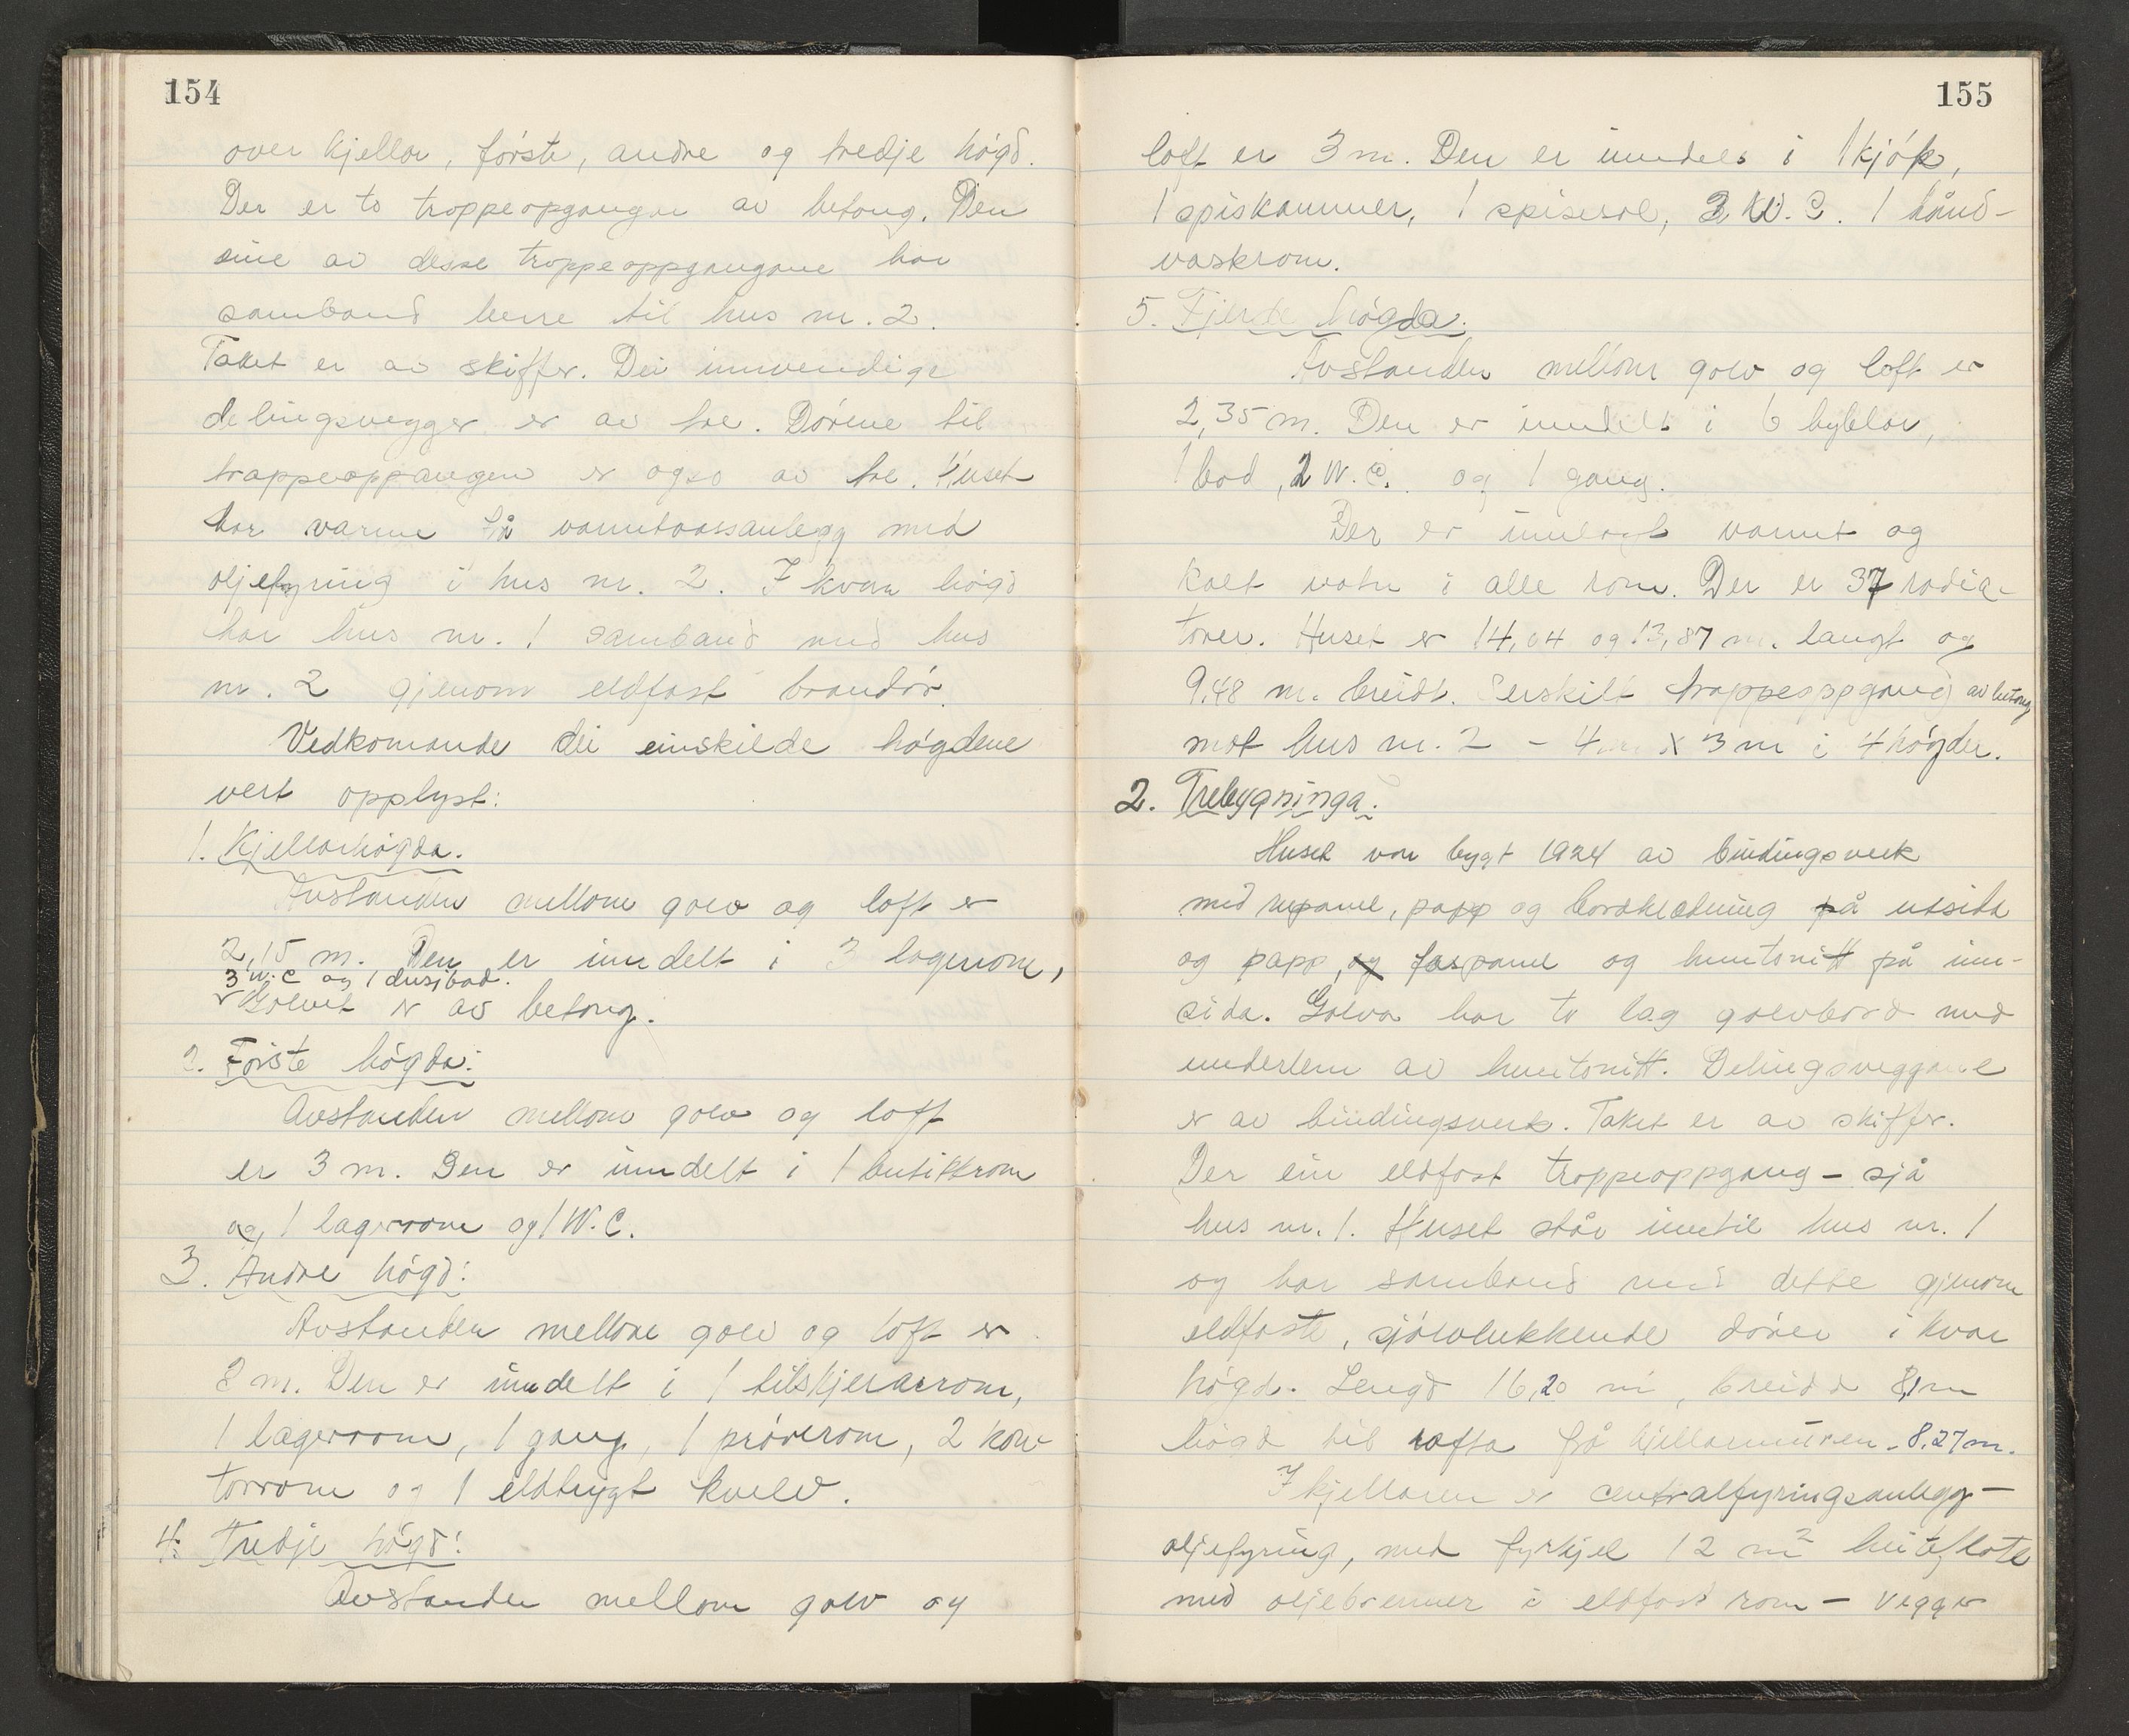 154
over kjellar, förste, andre og tredje högd.
Der er to troppeopgangar av betong. Den
eine av desse troppeoppgangane har
samband berre til hus nr. 2.
Taket er av skiffer. Dei innvendige
delingsvegger er av tre. Dörene til
trappeoppangen er også av tre. Huset
har varme frå varmtvassanlegg med
oljefyring i hus nr. 2. I kvar högd
har hus nr. 1 samband med hus
nr. 2 gjenom eldfast branddör.
Vedkomande dei einskilde högdene
vert opplyst:
1. Kjellarhögda.
Avstanden mellom golv og loft er
2,15 m. Den er inndelt i 3 lagerrom,
3 W.C og 1 dusjbad.
Golvet er av betong.
2. Förste högda:
Avstanden mellom golv og loft
er 3 m. Den er inndelt i 1 butikkrom
og 1 lagerrom og 1 W.C.
3. Andre högd:
Avstanden mellom golv og loft er
3 m. Den er inndelt i 1 tilskjerarrom,
1 lagerrom, 1 gang, 1 pröverom, 2 kon
torrom og 1 eldtrygt kvelv.
4. Tredje högd:
Avstanden mellom golv og
155
loft er 3 m. Den er inndelt i 1 kjök,
1 spiskammer, 1 spisesal, 3 W.C. 1 hånd-
vaskrom.
5. Fjerde högda.
Avstanden mellom golv og loft er
2,35 m. Den er inndelt i 6 hyblar,
1 bod, 2 W.C. og 1 gang.
Der er innlagt varmt og
kalt vatn i alle rom. Der er 37 radia-
torer. Huset er 14,04 og 13,87 m. langt og
9,48 m. breidt. Serskilt trappeoppgang av betong
mot hus nr. 2 - 4 m x 3 m i 4 högder.
2. Trebygninga.
Huset var bygt 1924 av bindingsverk
med rupanel, papp og bordkledning på utsida
og papp, og faspanel og huntonitt på inn-
sida. Golva har to lag golvbord med
underlem av huntonitt. Delingsveggane
er av bindingsverk. Taket er av skiffer.
Der ein eldfast troppeoppgang - sjå
hus nr. 1. Huset står inntil hus nr. 1
og har samband med dette gjenom
eldfaste, sjölvlukkende dörer i kvar
högd. Lengd 16,20 m, breidd 8,1 m
högd til rafta frå kjellarmuren - 8,27 m.
I kjellaren er centralfyringsanlegg -
oljefyring, med fyrkjel 12 m² heiteflate
med oljebrenner i eldfast rom - vegger